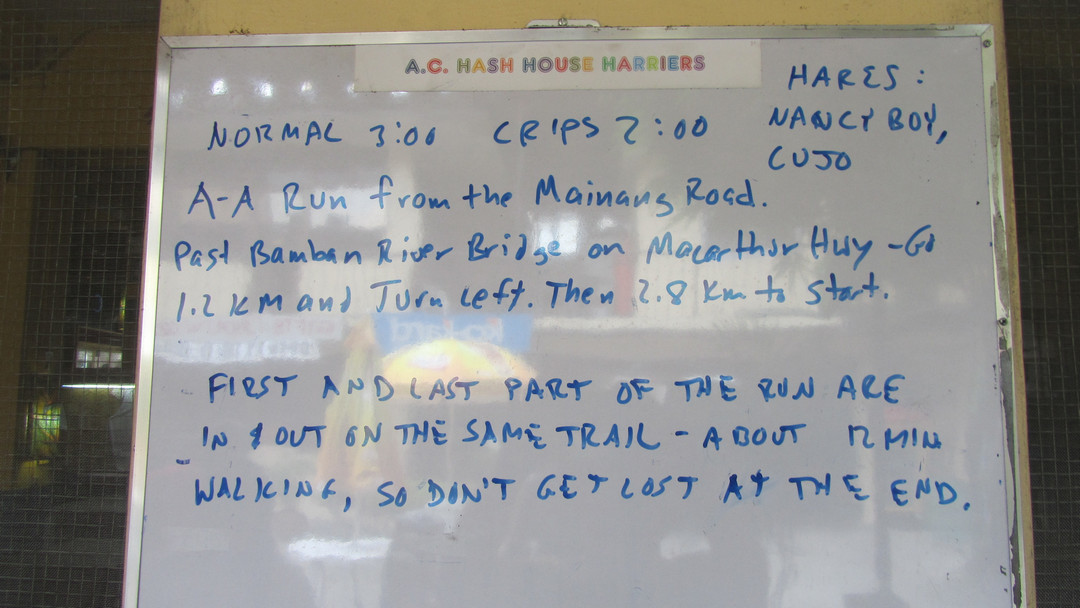 A.C. HASH HOUSE HARRIERS
HARES:
NANCY BOY,
CUJO
NORMAL 3:00 CRIPS 2:00
A-A Run from the Mainang Road.
Past Bamban River Bridge on Macarthur Hwy - Go
1.2 KM and Turn Left. Then 2.8 Km to Start.
FIRST AND LAST PART OF THE RUN ARE
IN & OUT ON THE SAME TRAIL - ABOUT 12 MIN
WALKING, SO DON'T GET LOST AT THE END.